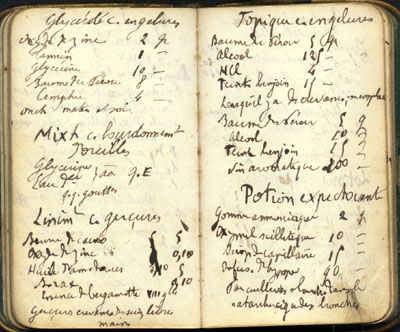 Glycérolé c. engelures
Oxyde de zinc 2 gr
Tannin 1 —
Glycérine 10 —
Baume du Pérou 8 —
Camphre 4 —
onct. matin et soir
Mixt c. bourdonnement
d'oreilles
Glycérine
Eau aa q.s
qq. gouttes
Linim c. gerçures
Beurre de cacao 5 5
Oxyde de zinc 0,10
Huile d'amandes 10
Borax 0,10
Essence de bergamotte VIII gtt
Gerçures crevasses du sein, lèvres
mains
Topique c. engelures
Baume du Pérou 5 gr
Alcool 125 —
HCl 4 —
Teint benjoin 15 —
Lorsqu'il y a des crevasses, remplacer
Baume du Pérou 5 g
Alcool 10 —
Teint benjoin 15 —
Vin aromatique 200 —
Potion expectorante
Gomme ammoniaque 2 g
Oxymel scillitique 10 —
Sirop de capillaire 15 —
Infus. de hysope 90 —
Par cuillerées dans
catarrhe des bronches